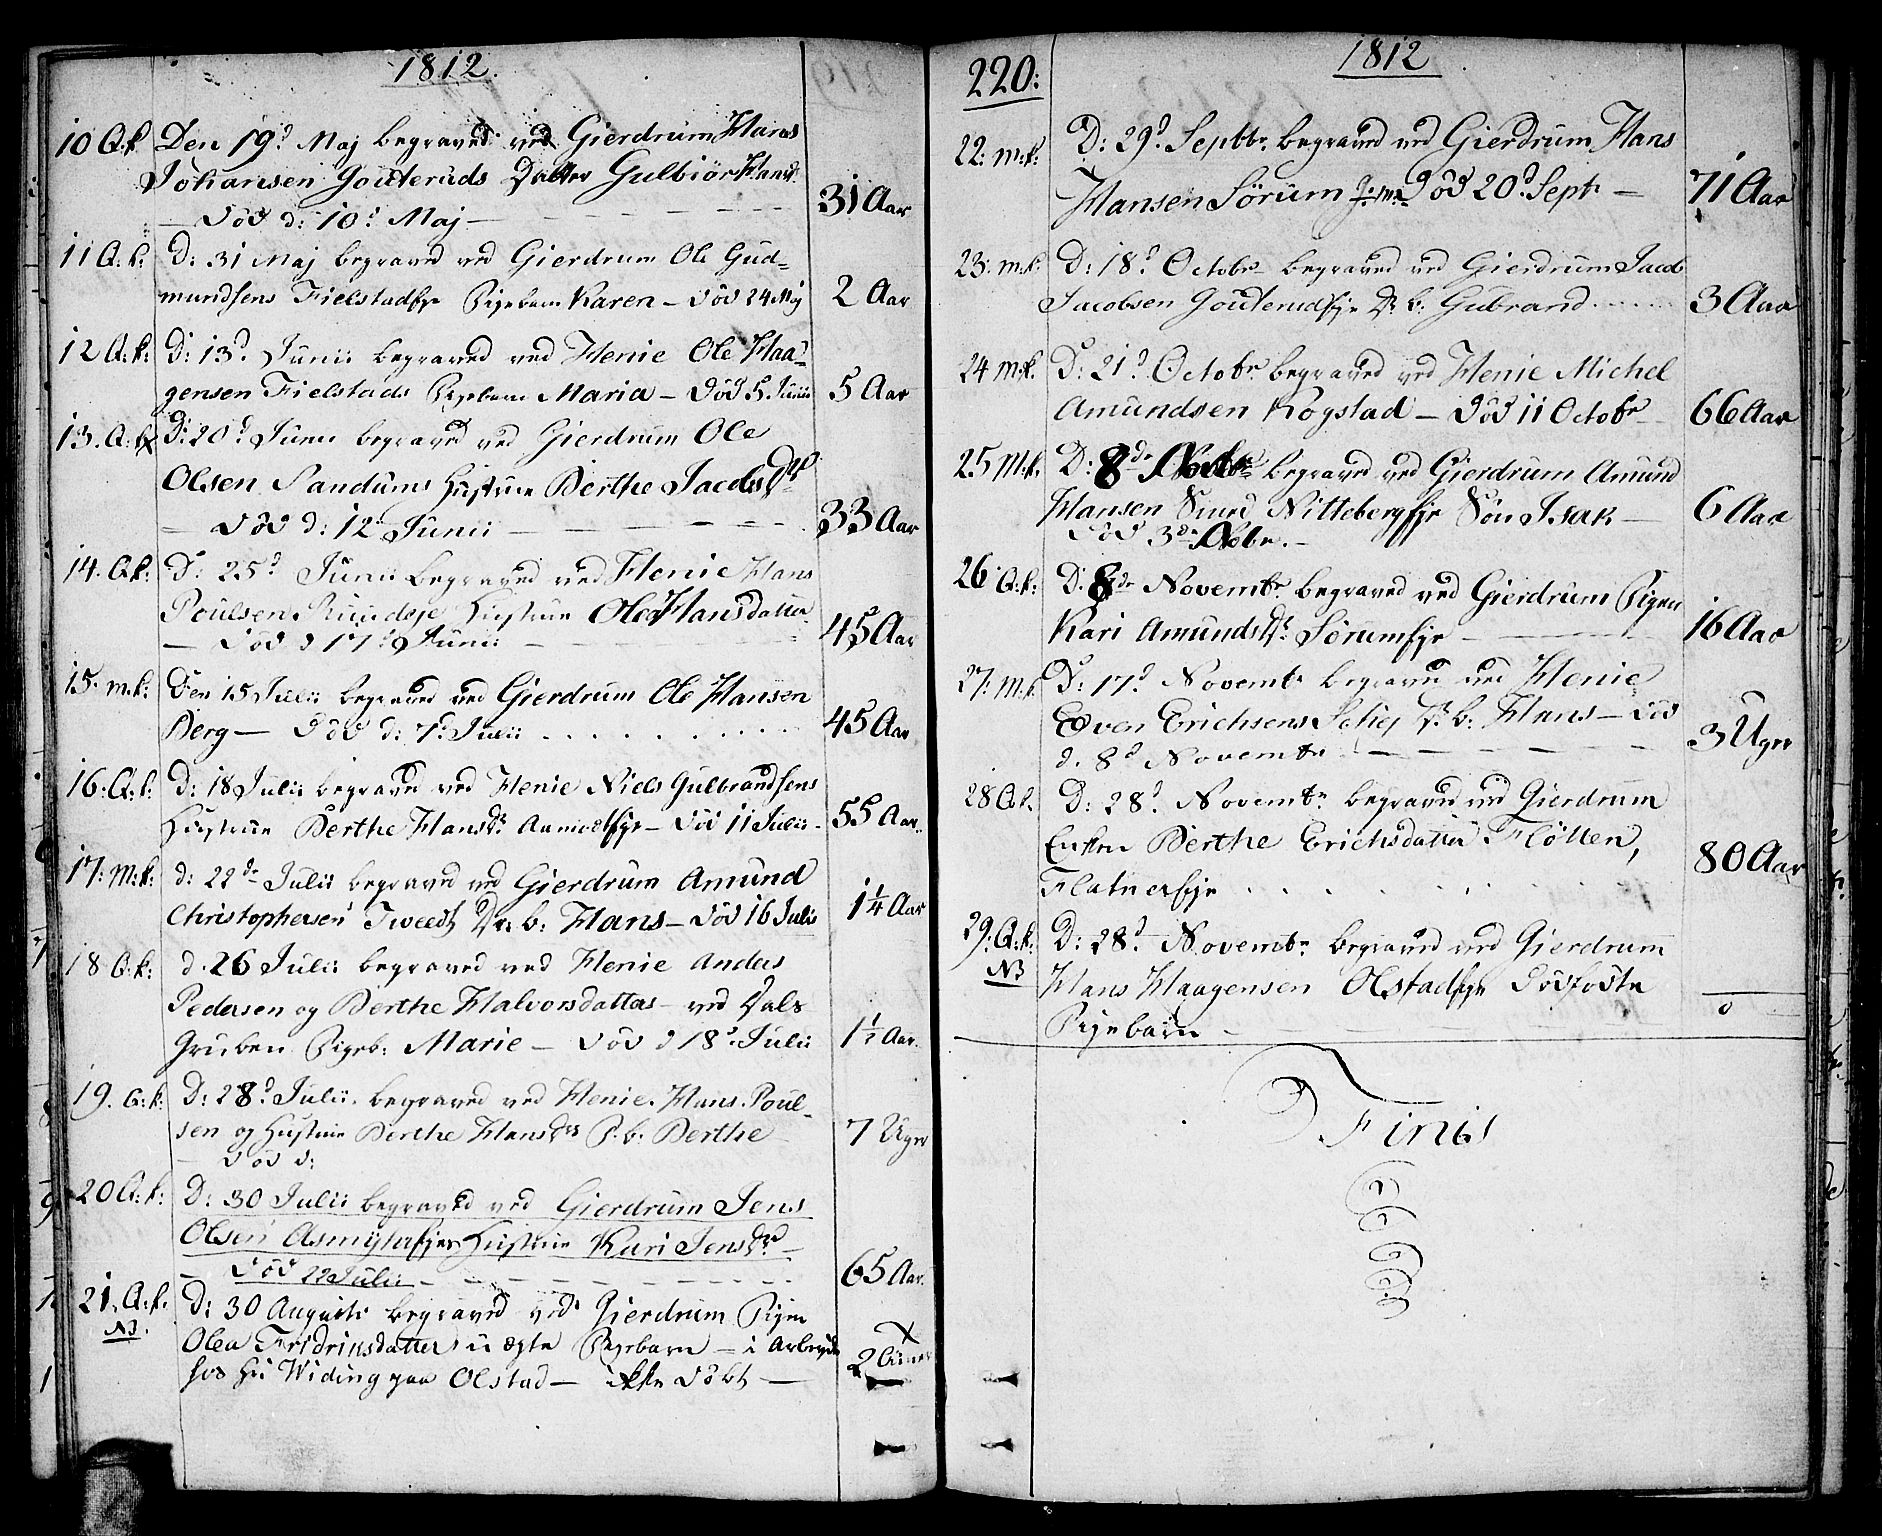 1812.
10 Q.k Den 19d Maj begraved ved Gierdrum Hans
Johansen Gouteruds Datter Gulbiör Hansd:
– död d: 10d Maj – 31 Aar
11 Q:k: D: 31 Maj begraved ved Gierdrum Ole Gud-
mundsens Fielstadeje Pigebarn Karen – död 24 Maj 2 Aar
12 Q:k: D: 13d Junii begraved ved Henie Ole Haa-
gensen Fielstads Pigebarn Maria – död 5 Junii 5 Aar
13. Q:k D: 20d Junii begraved ved Gierdrum Ole
Olsen Sandums Hustrue Berthe Jacobsdr
– död d: 12 Junii – 33 Aar
14. Q.k: D: 25d Junii begraved ved Henie Hans
Poulsen Hustrue Olea Hansdatter
– död d 17d Junii – 45 Aar
15. m.k: Den 15 Julii begraved ved Gierdrum Ole Hansen
Berg – död d: 7d Julii 45 Aar
16. Q.k: D: 18 Julii begraved ved Henie Niels Gulbrandsens
Hustrue Berthe Hansdr – död 11 Julii – 55 Aar
17: M:k: d: 22de Julii begraved ved Gierdrum Amund
Christophersen Dr: b: Hans – död 16 Julii 1¼ Aar
18 Q.k: d. 26 Julii begraved ved Henie Anders
Pedersen og Berthe Halvorsdatter – ved Dals
Gruben Pigeb: Marie – död d 18d Julii 1½ Aar.
19. Q:k: D: 28d Julii. begraved ved Henie. Hans. Poul-
sen og Hustrue Berthe Hansdr P: b: Berthe
– död d: 7 Uger
20 Q.k: D: 30 Julii begraved ved Gierdrum Jens
Olsen Hustrue Kari Jensdr –
– död 22 Julii – 65 Aar.
21. Q.k. D: 30 Augusti begraved ved Gierdrum Pigen
NB. Olea Fridrinsdatter u ægte Pigebarn – i Arbeyde
hos Hr Widing paa Olstad – ikke döbt – 2
220:
1812
22: m:k: D: 29d Septbr begraved ved Gierdrum Hans
Hansen Sörum död 20d Septr – 71 Aar
23: m.k: D: 18d Octobr begraved ved Gierdrum Jacob
Jacobsen Gouterudeje Dr. b: Gubrand 3 Aar
24 m.k. D: 21d Octobr begraved ved Henie Michel
Amundsen Kogstad – död 11 Octobr 66 Aar
25 M.k. D: 8de Novbr begraved ved Gierdrum Amund
Hansen Smed Nittebergeje Sön Isak – 6 Aar
död 3de Nobr. –
26 Q.k: D. 8de Novembr begraved ved Gierdrum Pigen
Kari Amundsdr Sörumeje – 16 Aar
27: M.k D: 17d Novembr begraved ved Henie
Even Erichsens Dr. b: Hans – död
d. 8d Novembr 3 Uger
28 Q.k. D: 28d Novembr begraved ved Gierdrum
Enken Berthe Erichsdatter Flötten,
Flatnereje 80 Aar
29: Q.k: D: 28d Novembr begraved ved Gierdrum
NB Hans Haagensen Olstadeje Dödfödte
Pigebarn – 0
Finis